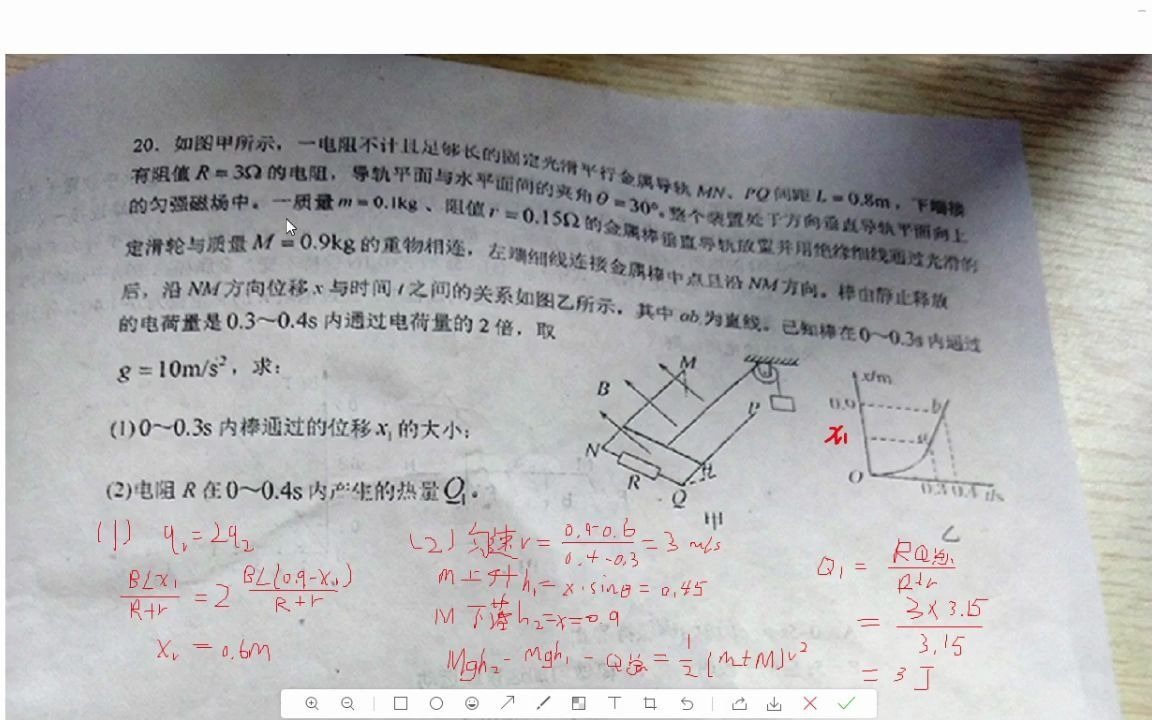 20. 如图甲所示，一电阻不计且足够长的固定光滑平行金属导轨 MN、PQ 间距 L = 0.8m，下端接
有阻值 R = 3Ω 的电阻，导轨平面与水平面间的夹角 θ = 30°。整个装置处于方向垂直导轨平面向上
的匀强磁场中。一质量 m = 0.1kg、阻值 r = 0.15Ω 的金属棒垂直导轨放置并用绝缘细线通过光滑的
定滑轮与质量 M = 0.9kg 的重物相连，左端细线连接金属棒中点且沿 NM 方向。棒由静止释放
后，沿 NM 方向位移 x 与时间 t 之间的关系如图乙所示，其中 ab 为直线。已知棒在 0～0.3s 内通过
的电荷量是 0.3～0.4s 内通过电荷量的 2 倍，取
g = 10m/s²，求：
(1) 0～0.3s 内棒通过的位移 x₁ 的大小；
(2) 电阻 R 在 0～0.4s 内产生的热量 Q₁。
M
B
P
N
R
Q
甲
x/m
0.9
b
x₁
a
O
0.3 0.4 t/s
乙
(1) q₁ = 2q₂
BLx₁/R+r = 2 BL(0.9-x₁)/R+r
x₁ = 0.6m
(2) 匀速 v = 0.9-0.6/0.4-0.3 = 3 m/s
m上升 h₁ = x·sinθ = 0.45
M下落 h₂ = x = 0.9
Mgh₂ - mgh₁ - Q总 = 1/2 (m+M)v²
Q₁ = RQ总/R+r
= 3×3.15/3.15
= 3J